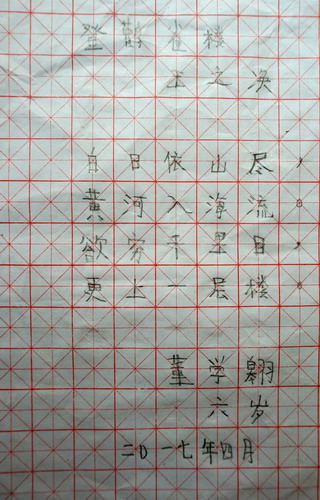 登鹳雀楼
王之涣
白日依山尽，
黄河入海流。
欲穷千里目，
更上一层楼。
董学翱
六岁
二0一七年四月